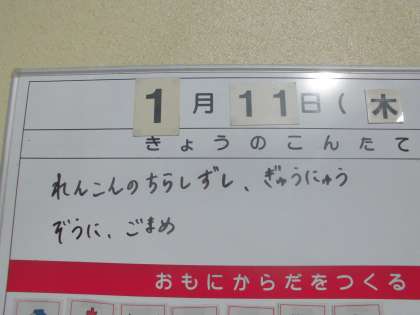 1月11日(木
きょうのこんたて
れんこんのちらしずし、ぎゅうにゅう
ぞうに、ごまめ
おもにからだをつくる